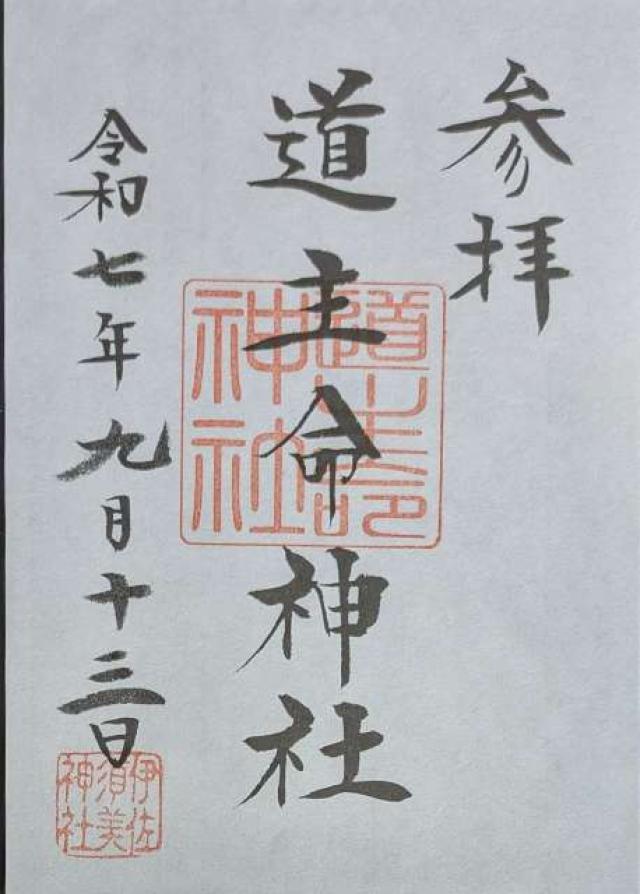 参拝
道主命神社
令和七年九月十三日
道主命
神社
伊佐
須美
神社